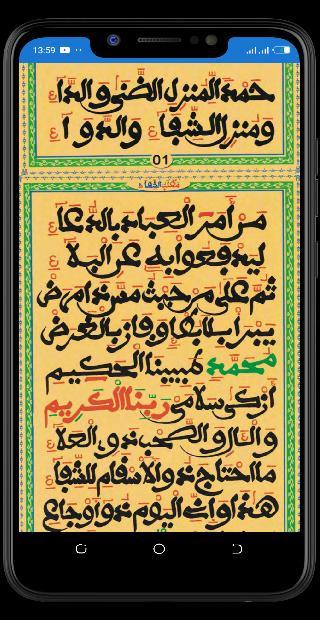 13:59
حمدا لمنزل الضنى والداء
ومنزل الشفاء والدواء
01
من أمر العباد بالدعاء
ليدفعوا به عن البلاء
ثم على من حيث مس ذا مرض
يبرا وفاز بالغرض
محمد نبينا الحكيم
أزكى سلامي ربنا الكريم
والآل والصحب ذوي العلاء
ما احتاج ذو الأسقام للشفاء
هذا وإني اليوم ذو أوجاع